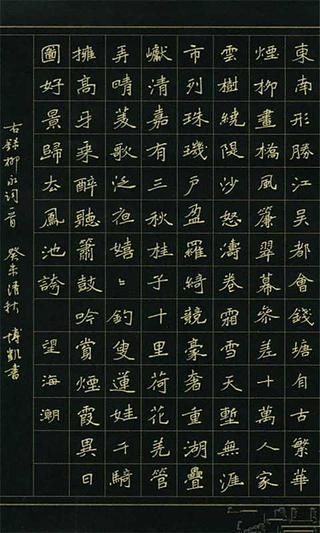 東南形勝江吳都會錢塘自古繁華
煙柳畫橋風簾翠幕參差十萬人家
雲樹繞隄沙怒濤卷霜雪天塹無涯
市列珠璣戶盈羅綺競豪奢重湖疊
巘清嘉有三秋桂子十里荷花羌管
弄晴菱歌泛夜嬉〻釣叟蓮娃千騎
擁高牙乘醉聽簫鼓吟賞煙霞異日
圖好景歸去鳳池誇 望海潮
右録柳永詞一首 癸未清秋 博凱書